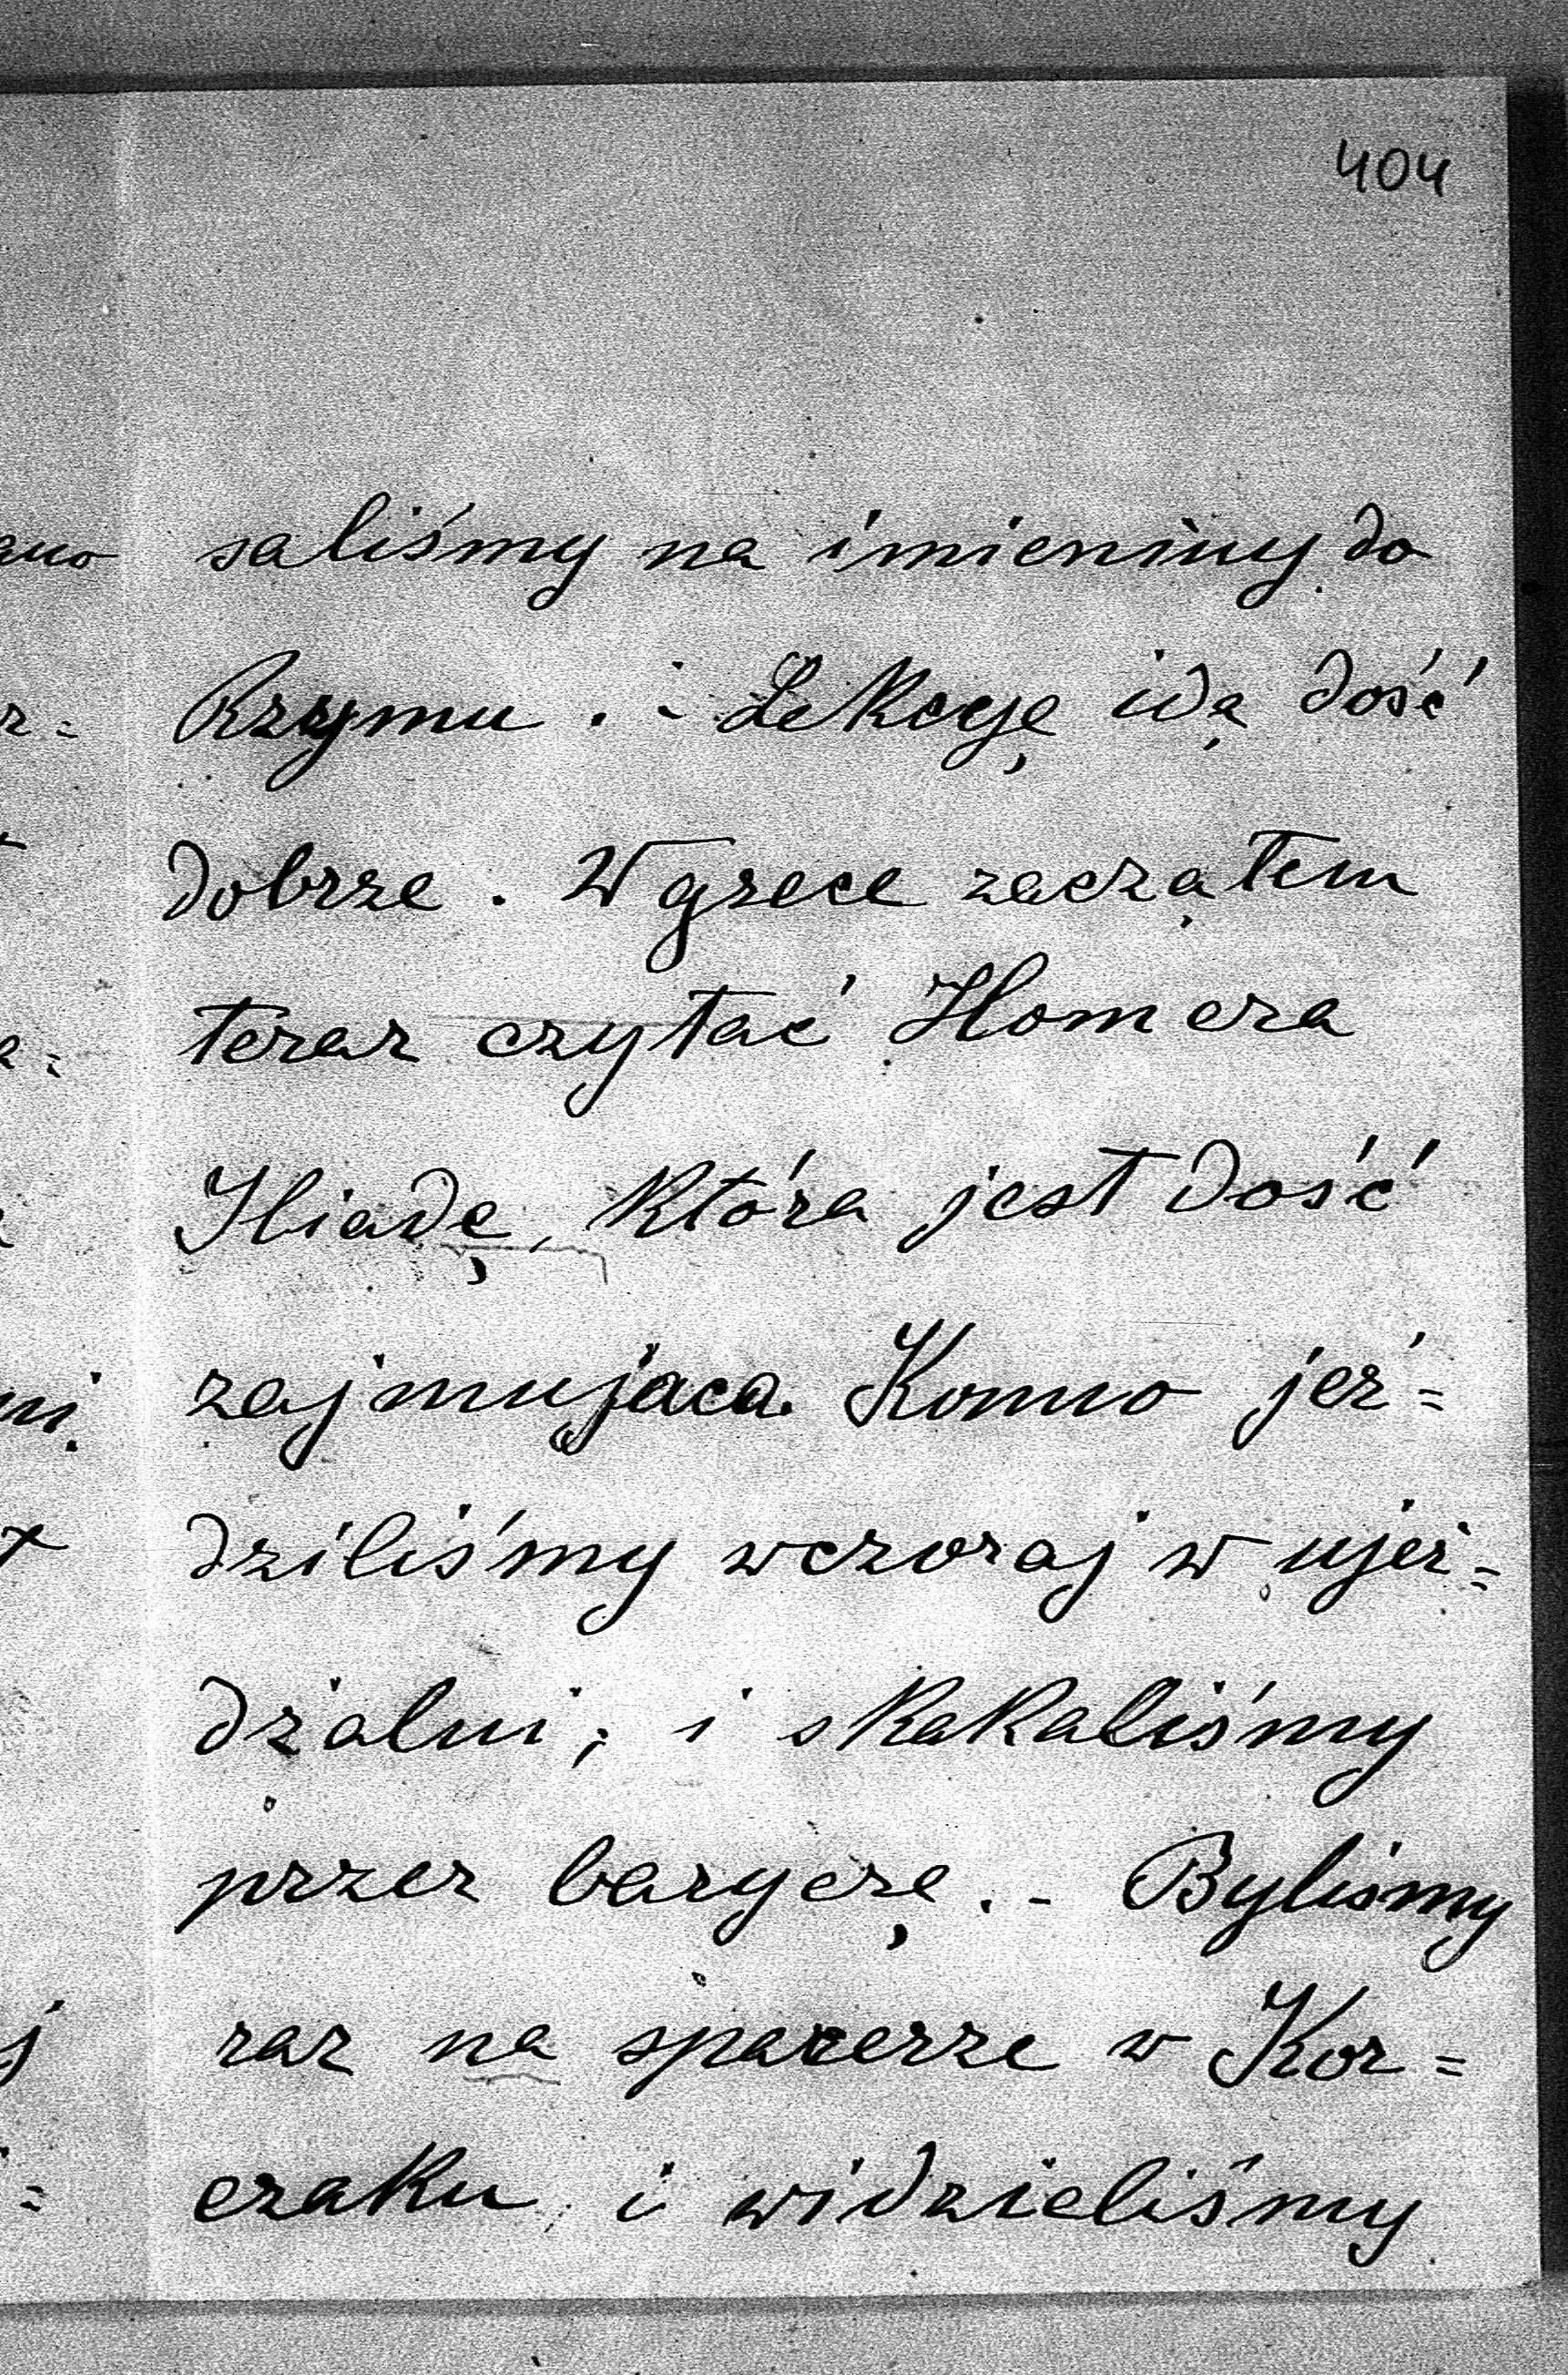 404
saliśmy na imieniny do
Rzymu . - Lekcyę idą dość
dobrze . W grece zacząłem
teraz czytać Homera
Iliadę, która jest dość
zajmująca. Konno jeź=
dziliśmy wczoraj w ujeż=
dżalni, i skakaliśmy
przez baryerę . - Byliśmy
raz na spacerze w Kor=
czaku i widzieliśmy